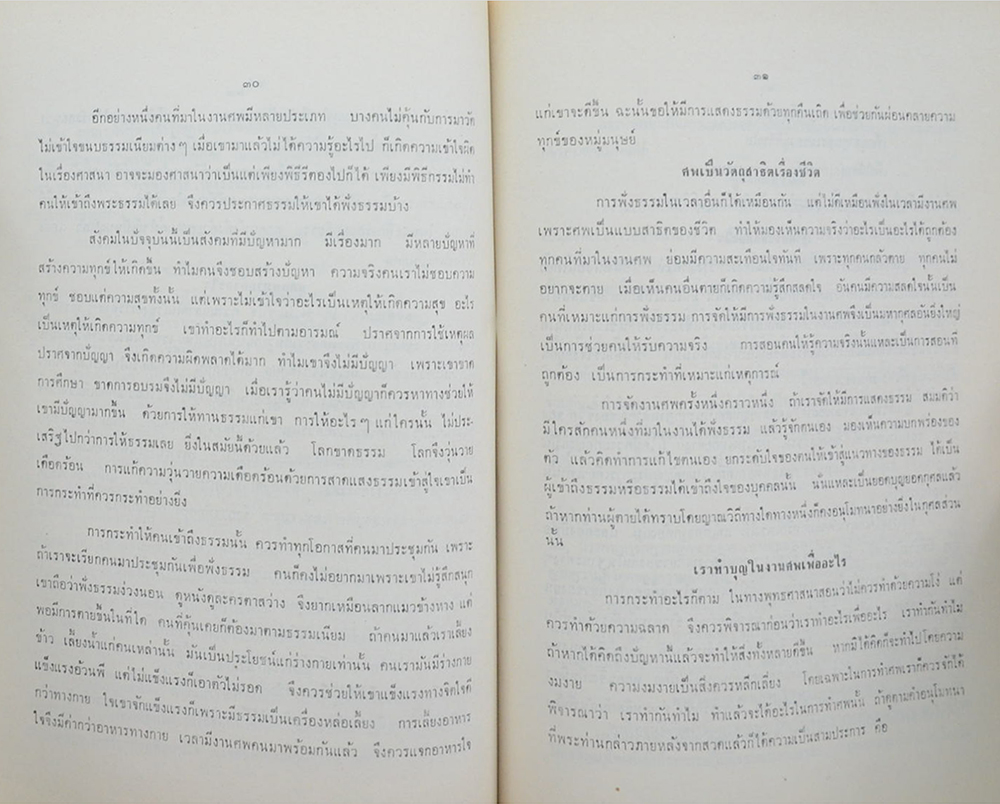 ๓๐
อีกอย่างหนึ่งคนที่มาในงานศพมีหลายประเภท บางคนไม่คุ้นกับการมาวัด
ไม่เข้าใจขนบธรรมเนียมต่างๆ เมื่อเขามาแล้วไม่ได้ความรู้อะไรไป ก็เกิดความเข้าใจผิด
ในเรื่องศาสนา อาจจะมองศาสนาว่าเป็นแต่เพียงพิธีรีตองไปก็ได้ เพียงมีพิธีกรรมไม่ทำ
คนให้เข้าถึงพระธรรมได้เลย จึงควรประกาศธรรมให้เขาได้ฟังธรรมบ้าง
สังคมในปัจจุบันนี้เป็นสังคมที่มีปัญหามาก มีเรื่องมาก มีหลายปัญหาที่
สร้างความทุกข์ให้เกิดขึ้น ทำไมคนจึงชอบสร้างปัญหา ความจริงคนเราไม่ชอบความ
ทุกข์ ชอบแต่ความสุขทั้งนั้น แต่เพราะไม่เข้าใจว่าอะไรเป็นเหตุให้เกิดความสุข อะไร
เป็นเหตุให้เกิดความทุกข์ เขาทำอะไรก็ทำไปตามอารมณ์ ปราศจากการใช้เหตุผล
ปราศจากปัญญา จึงเกิดความผิดพลาดได้มาก ทำไมเขาจึงไม่มีปัญญา เพราะเขาขาด
การศึกษา ขาดการอบรมจึงไม่มีปัญญา เมื่อเรารู้ว่าคนไม่มีปัญญาก็ควรหาทางช่วยให้
เขามีปัญญามากขึ้น ด้วยการให้ทานธรรมแก่เขา การให้อะไรๆ แก่ใครนั้น ไม่ประ-
เสริฐไปกว่าการให้ธรรมเลย ยิ่งในสมัยนี้ด้วยแล้ว โลกขาดธรรม โลกจึงวุ่นวาย
เดือดร้อน การแก้ความวุ่นวายความเดือดร้อนด้วยการสาดแสงธรรมเข้าสู่ใจเขาเป็น
การกระทำที่ควรกระทำอย่างยิ่ง
การกระทำให้คนเข้าถึงธรรมนั้น ควรทำทุกโอกาสที่คนมาประชุมกัน เพราะ
ถ้าเราจะเรียกคนมาประชุมกันเพื่อฟังธรรม คนก็คงไม่อยากมาเพราะเขาไม่รู้สึกสนุก
เขาถือว่าฟังธรรมง่วงนอน ดูหนังดูละครตาสว่าง จึงยากเหมือนลากแมวข้างหาง แต่
พอมีการตายขึ้นในที่ใด คนที่คุ้นเคยก็ต้องมาตามธรรมเนียม ถ้าคนมาแล้วเราเลี้ยง
ข้าว เลี้ยงน้ำแก่คนเหล่านั้น มันเป็นประโยชน์แก่ร่างกายเท่านั้น คนเรามันมีร่างกาย
แข็งแรงอ้วนพี แต่ใจไม่แข็งแรงก็เอาตัวไม่รอด จึงควรช่วยให้เขาแข็งแรงทางจิตใจดี
กว่าทางกาย ใจเขาจักแข็งแรงก็เพราะมีธรรมเป็นเครื่องหล่อเลี้ยง การเลี้ยงอาหาร
ใจจึงมีค่ากว่าอาหารทางกาย เวลามีงานศพคนมาพร้อมกันแล้ว จึงควรแจกอาหารใจ
๓๑
แก่เขาจะดีขึ้น ฉะนั้นขอให้มีการแสดงธรรมด้วยทุกคืนเถิด เพื่อช่วยกันผ่อนคลายความ
ทุกข์ของหมู่มนุษย์
ศพเป็นวัตถุสาธิตเรื่องชีวิต
การฟังธรรมในเวลาอื่นก็ได้เหมือนกัน แต่ไม่ดีเหมือนฟังในเวลามีงานศพ
เพราะศพเป็นแบบสาธิตของชีวิต ทำให้มองเห็นความจริงว่าอะไรเป็นอะไรได้ถูกต้อง
ทุกคนที่มาในงานศพ ย่อมมีความสะเทือนใจทันที เพราะทุกคนกลัวตาย ทุกคนไม่
อยากจะตาย เมื่อเห็นคนอื่นตายก็เกิดความรู้สึกสลดใจ อันคนมีความสลดใจนั้นเป็น
คนที่เหมาะแก่การฟังธรรม การจัดให้มีการฟังธรรมในงานศพจึงเป็นมหากุศลอันยิ่งใหญ่
เป็นการช่วยคนให้รับความจริง การสอนคนให้รู้ความจริงนั้นแหละเป็นการสอนที่
ถูกต้อง เป็นการกระทำที่เหมาะแก่เหตุการณ์
การจัดงานศพครั้งหนึ่งคราวหนึ่ง ถ้าเราจัดให้มีการแสดงธรรม สมมติว่า
มีใครสักคนหนึ่งที่มาในงานได้ฟังธรรม แล้วรู้จักตนเอง มองเห็นความบกพร่องของ
ตัว แล้วคิดทำการแก้ไขตนเอง ยกระดับใจของตนให้เข้าสู่แนวทางของธรรม ได้เป็น
ผู้เข้าถึงธรรมหรือธรรมได้เข้าถึงใจของบุคคลนั้น นั่นแหละเป็นยอดบุญยอดกุศลแล้ว
ถ้าหากท่านผู้ตายได้ทราบโดยญาณวิถีทางใดทางหนึ่งก็คงอนุโมทนาอย่างยิ่งในกุศลส่วน
นั้น
เราทำบุญในงานศพเพื่ออะไร
การกระทำอะไรก็ตาม ในทางพุทธศาสนาสอนว่าไม่ควรทำด้วยความโง่ แต่
ควรทำด้วยความฉลาด จึงควรพิจารณาก่อนว่าเราทำอะไรเพื่ออะไร เราทำกันทำไม
ถ้าหากได้คิดถึงปัญหานี้แล้วจะทำให้สิ่งทั้งหลายดีขึ้น หากมิได้คิดก็จะทำไปโดยความ
งมงาย ความงมงายเป็นสิ่งควรหลีกเลี่ยง โดยเฉพาะในการทำศพเราก็ควรจักได้
พิจารณาว่า เราทำกันทำไม ทำแล้วจะได้อะไรในการทำศพนั้น ถ้าดูตามคำอนุโมทนา
ที่พระท่านกล่าวภายหลังจากสวดแล้วก็ได้ความเป็นสามประการ คือ